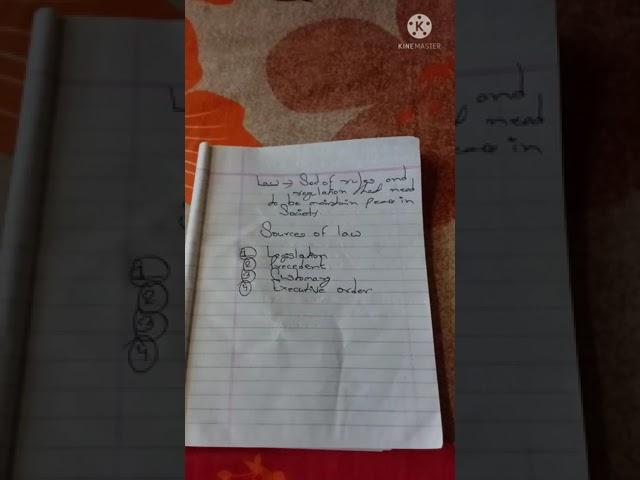 KINEMASTER
Law → Set of rules and
regulation that need
to be maintain peace in
Society
Sources of law
1 Legislation
2 precedent
3 Customary
4 Executive order